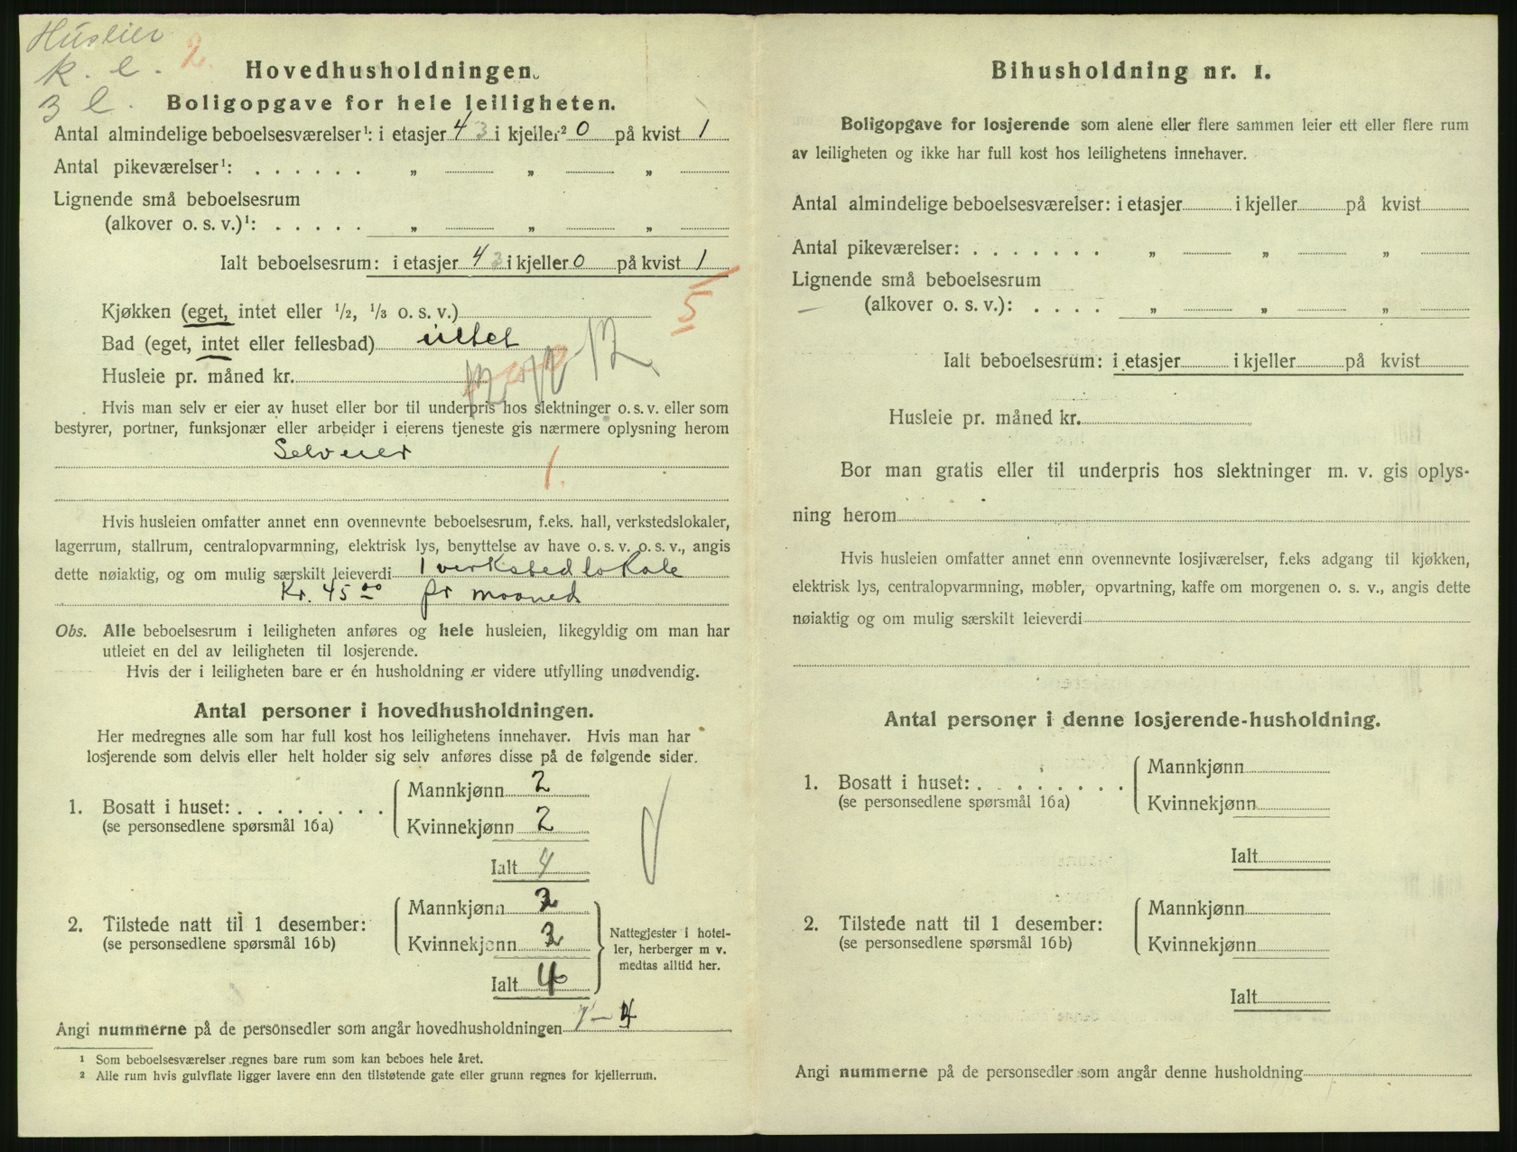 Husleier
k. l. 2.
3 l.
Hovedhusholdningen.
Boligopgave for hele leiligheten.
Antal almindelige beboelsesværelser¹: i etasjer 4 3 i kjeller² 0 på kvist 1
Antal pikeværelser¹: . . . . . . „ „ „
Lignende små beboelsesrum
(alkover o. s. v.)¹: . . . . . „ „ „
Ialt beboelsesrum: i etasjer 4 3 i kjeller 0 på kvist 1
5
Kjøkken (eget, intet eller 1/2, 1/3 o. s. v.)
Bad (eget, intet eller fellesbad) intet
Husleie pr. måned kr.
Hvis man selv er eier av huset eller bor til underpris hos slektninger o. s. v. eller som
bestyrer, portner, funksjonær eller arbeider i eierens tjeneste gis nærmere oplysning herom
Selveier
1.
Hvis husleien omfatter annet enn ovennevnte beboelsesrum, f.eks. hall, verkstedslokaler,
lagerrum, stallrum, centralopvarmning, elektrisk lys, benyttelse av have o. s. v. o. s. v., angis
dette nøiaktig, og om mulig særskilt leieverdi 1 verkstedlokale
Kr. 45 00 pr maaned
Obs. Alle beboelsesrum i leiligheten anføres og hele husleien, likegyldig om man har
utleiet en del av leiligheten til losjerende.
Hvis der i leiligheten bare er én husholdning er videre utfylling unødvendig.
Antal personer i hovedhusholdningen.
Her medregnes alle som har full kost hos leilighetens innehaver. Hvis man har
losjerende som delvis eller helt holder sig selv anføres disse på de følgende sider.
1. Bosatt i huset: . . . . . . . .
(se personsedlene spørsmål 16a)
Mannkjønn 2
Kvinnekjønn 2
Ialt 4
2. Tilstede natt til 1 desember:
(se personsedlene spørsmål 16b)
Mannkjønn 2
Kvinnekjønn 2
Ialt 4
Nattegjester i hotel-
ler, herberger m v.
medtas alltid her.
Angi nummerne på de personsedler som angår hovedhusholdningen 1 — 4
¹ Som beboelsesværelser regnes bare rum som kan beboes hele året.
² Alle rum hvis gulvflate ligger lavere enn den tilstøtende gate eller grunn regnes for kjellerrum.
Bihusholdning nr. 1.
Boligopgave for losjerende som alene eller flere sammen leier ett eller flere rum
av leiligheten og ikke har full kost hos leilighetens innehaver.
Antal almindelige beboelsesværelser: i etasjer i kjeller på kvist
Antal pikeværelser: . . . . . . . „ „ „
Lignende små beboelsesrum
(alkover o. s. v.): . . . . „ „ „
Ialt beboelsesrum: i etasjer i kjeller på kvist
Husleie pr. måned kr.
Bor man gratis eller til underpris hos slektninger m. v. gis oplys-
ning herom
Hvis husleien omfatter annet enn ovennevnte losjiværelser, f.eks adgang til kjøkken,
elektrisk lys, centralopvarmning, møbler, opvartning, kaffe om morgenen o. s. v., angis dette
nøiaktig og om mulig særskilt leieverdi
Antal personer i denne losjerende-husholdning.
1. Bosatt i huset: . . . . . . . .
(se personsedlene spørsmål 16a)
Mannkjønn
Kvinnekjønn
Ialt
2. Tilstede natt til 1 desember:
(se personsedlene spørsmål 16b)
Mannkjønn
Kvinnekjønn
Ialt
Angi nummerne på de personsedler som angår denne husholdning